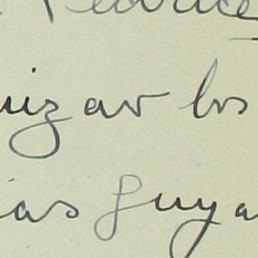 uizar los
ias guya